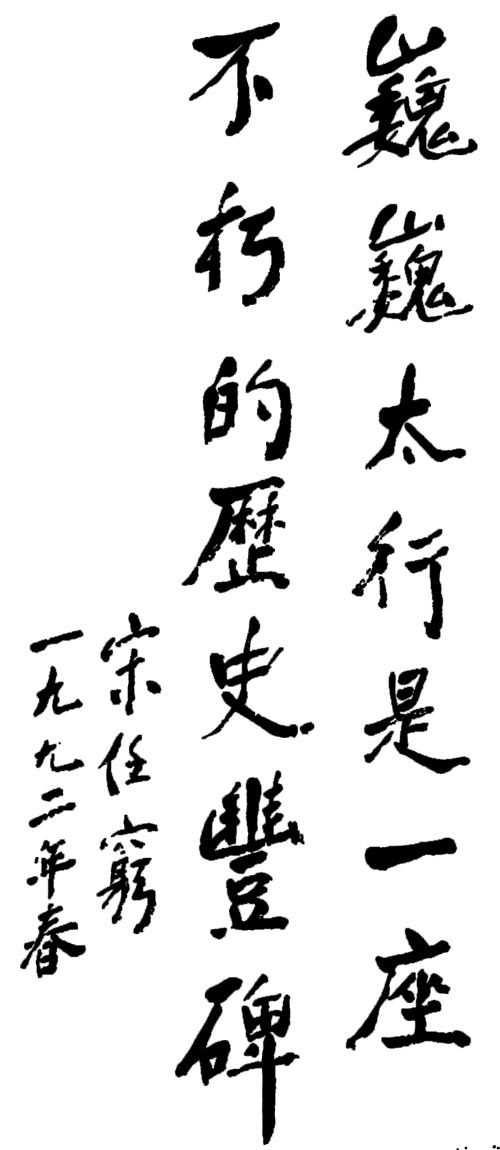 巍巍太行是一座
不朽的歷史豐碑
宋任窮
一九九二年春